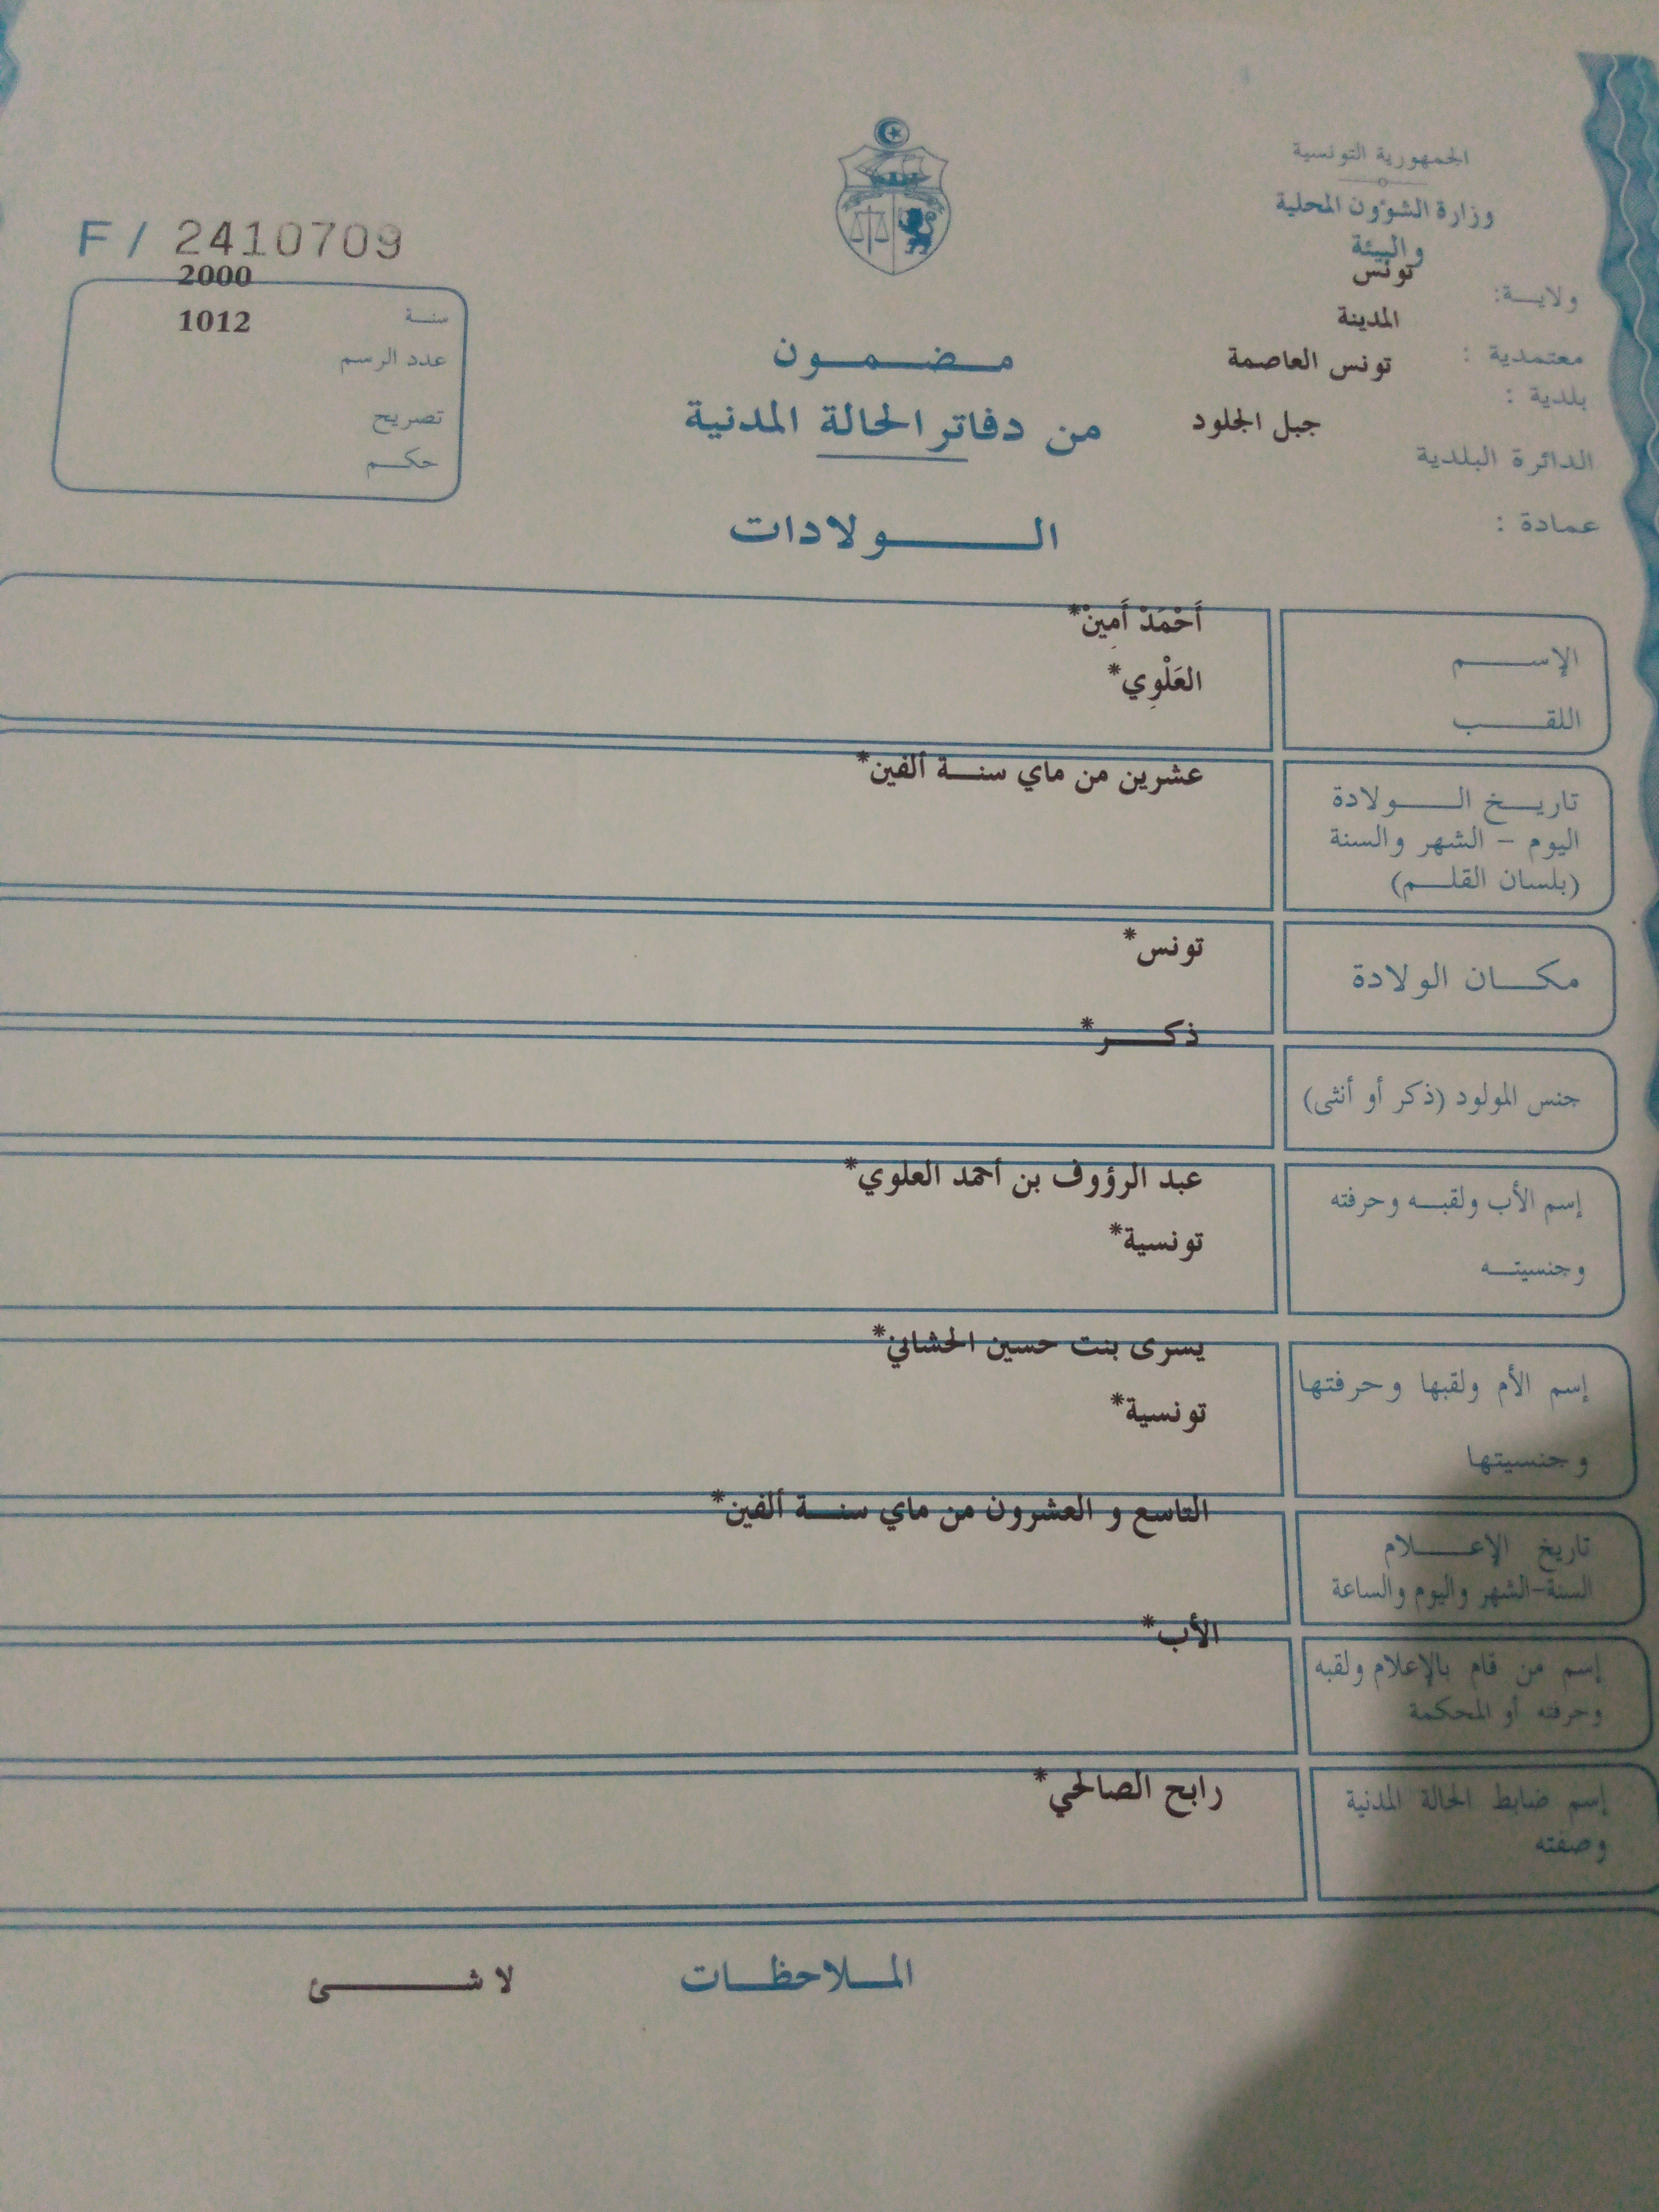 الجمهورية التونسية
وزارة الشؤون المحلية
والبيئة
ولايـــة: تونس
معتمدية : المدينة
بلدية : تونس العاصمة
الدائرة البلدية جبل الجلود
عمادة :
مـضـمـون
من دفاتر الحالة المدنية
الـولادات
F / 2410709
سنـــة 2000
عدد الرسم 1012
تصريح
حكـــم
الإســـم أَحْمَدْ أَمِينْ*
اللقـــب العَلْوِي*
تاريـخ الـولادة عشرين من ماي سنـــة ألفين*
اليوم – الشهر والسنة
(بلسان القلـــم)
مكـــان الولادة تونس*
جنس المولود (ذكر أو أنثى) ذكـــر*
إسم الأب ولقبـــه وحرفته عبد الرؤوف بن أحمد العلوي*
وجنسيتـــه تونسية*
إسم الأم ولقبها وحرفتها يسرى بنت حسين الحشاني*
وجنسيتها تونسية*
تاريخ الإعـــلام التاسع و العشرون من ماي سنـــة ألفين*
السنة-الشهر واليوم والساعة
إسم من قام بالإعلام ولقبه الأب*
وحرفته أو المحكمة
إسم ضابط الحالة المدنية رابح الصالحي*
وصفته
المـلاحظـــات لا شـــئ